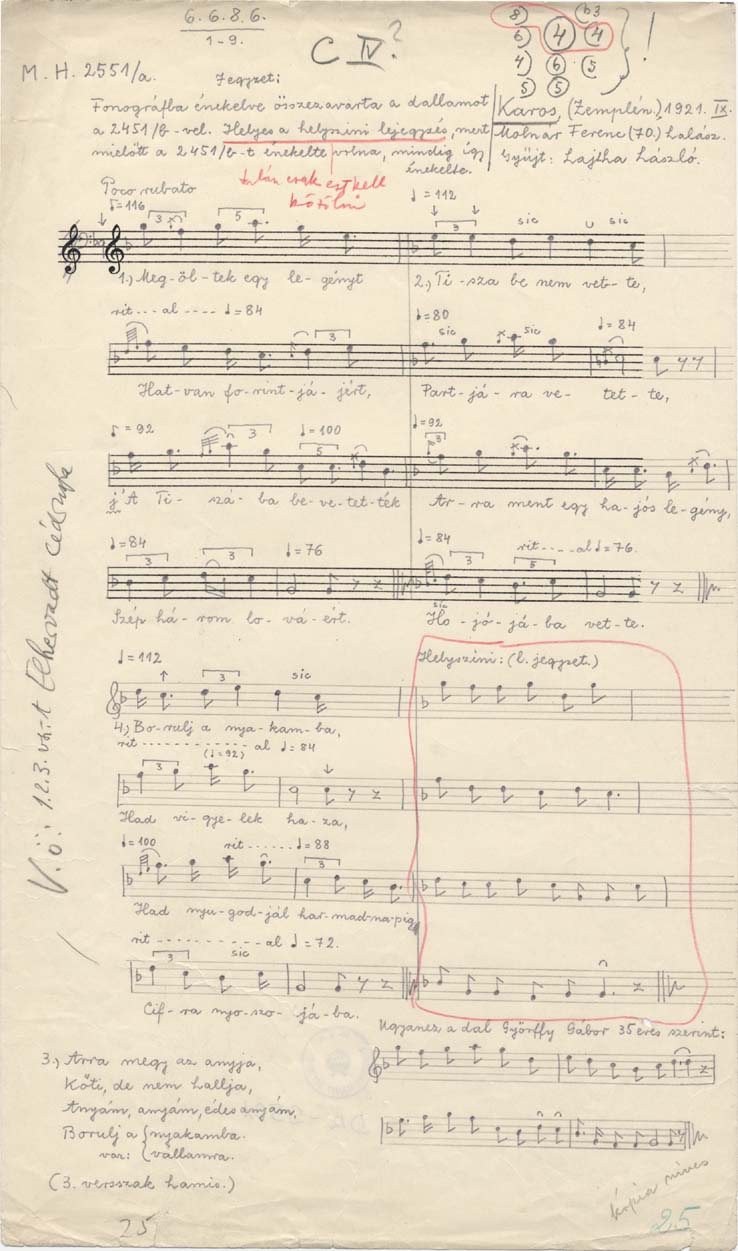 6. 6. 8. 6.
1-9.
C IV?
8 b3
6 4 4
4 6 5
5 5
!
M. H. 2551/a.
Jegyzet:
Fonográfba énekelve összezavarta a dallamot
a 2451/b-vel. Helyes a helyszini lejegyzés, mert
mielőtt a 2451/b-t énekelte volna, mindig így
énekelte.
Karos, (Zemplén.) 1921. IX.
Molnár Ferenc (70.) halász.
Gyüjt: Lajtha László.
talán csak ezt kell
közölni
Poco rubato
♪=116
♩=112
3 5 3 sic sic
1.) Meg-öl-tek egy le-gényt 2.) Ti-sza be nem vet-te,
rit --- al ---- ♩=84 ♩=80 sic sic ♩=84
3
Hat-van fo-rint-já-jért, Part-já-ra ve-tet-te,
♪=92 ♩=100 ♩=92
3 5 3
j'A Ti-szá-ba be-ve-tet-ték Ar-ra ment egy ha-jós le-gény,
♩=84 ♩=76 ♩=84 rit---- al ♩=76.
3 3 3 5
Szép há-rom lo-vá-ért. Ho-jó-já-ba vet-te.
sic
♩=112 sic
3
4.) Bo-rulj a nya-kam-ba,
rit ------------ al ♩=84
(♩=92)
3
Had vi-gye-lek ha-za,
♩=100 rit...... ♩=88
3
Had nyu-god-jál har-mad-na-pig
rit --------- al ♩=72.
3 sic
Cif-ra nyo-szo-já-ba.
Helyszini: (l. jegyzet.)
Ugyanez a dal Györffy Gábor 35 éves szerint:
3.) Arra megy az anyja,
Költi, de nem hallja,
Anyám, anyám, édes anyám,
Borulj a { nyakamba.
var: ( vállamra.
(3. versszak hamis.)
V. ö.: 1. 2. 3. vsz-t
25
kópia nincs
25